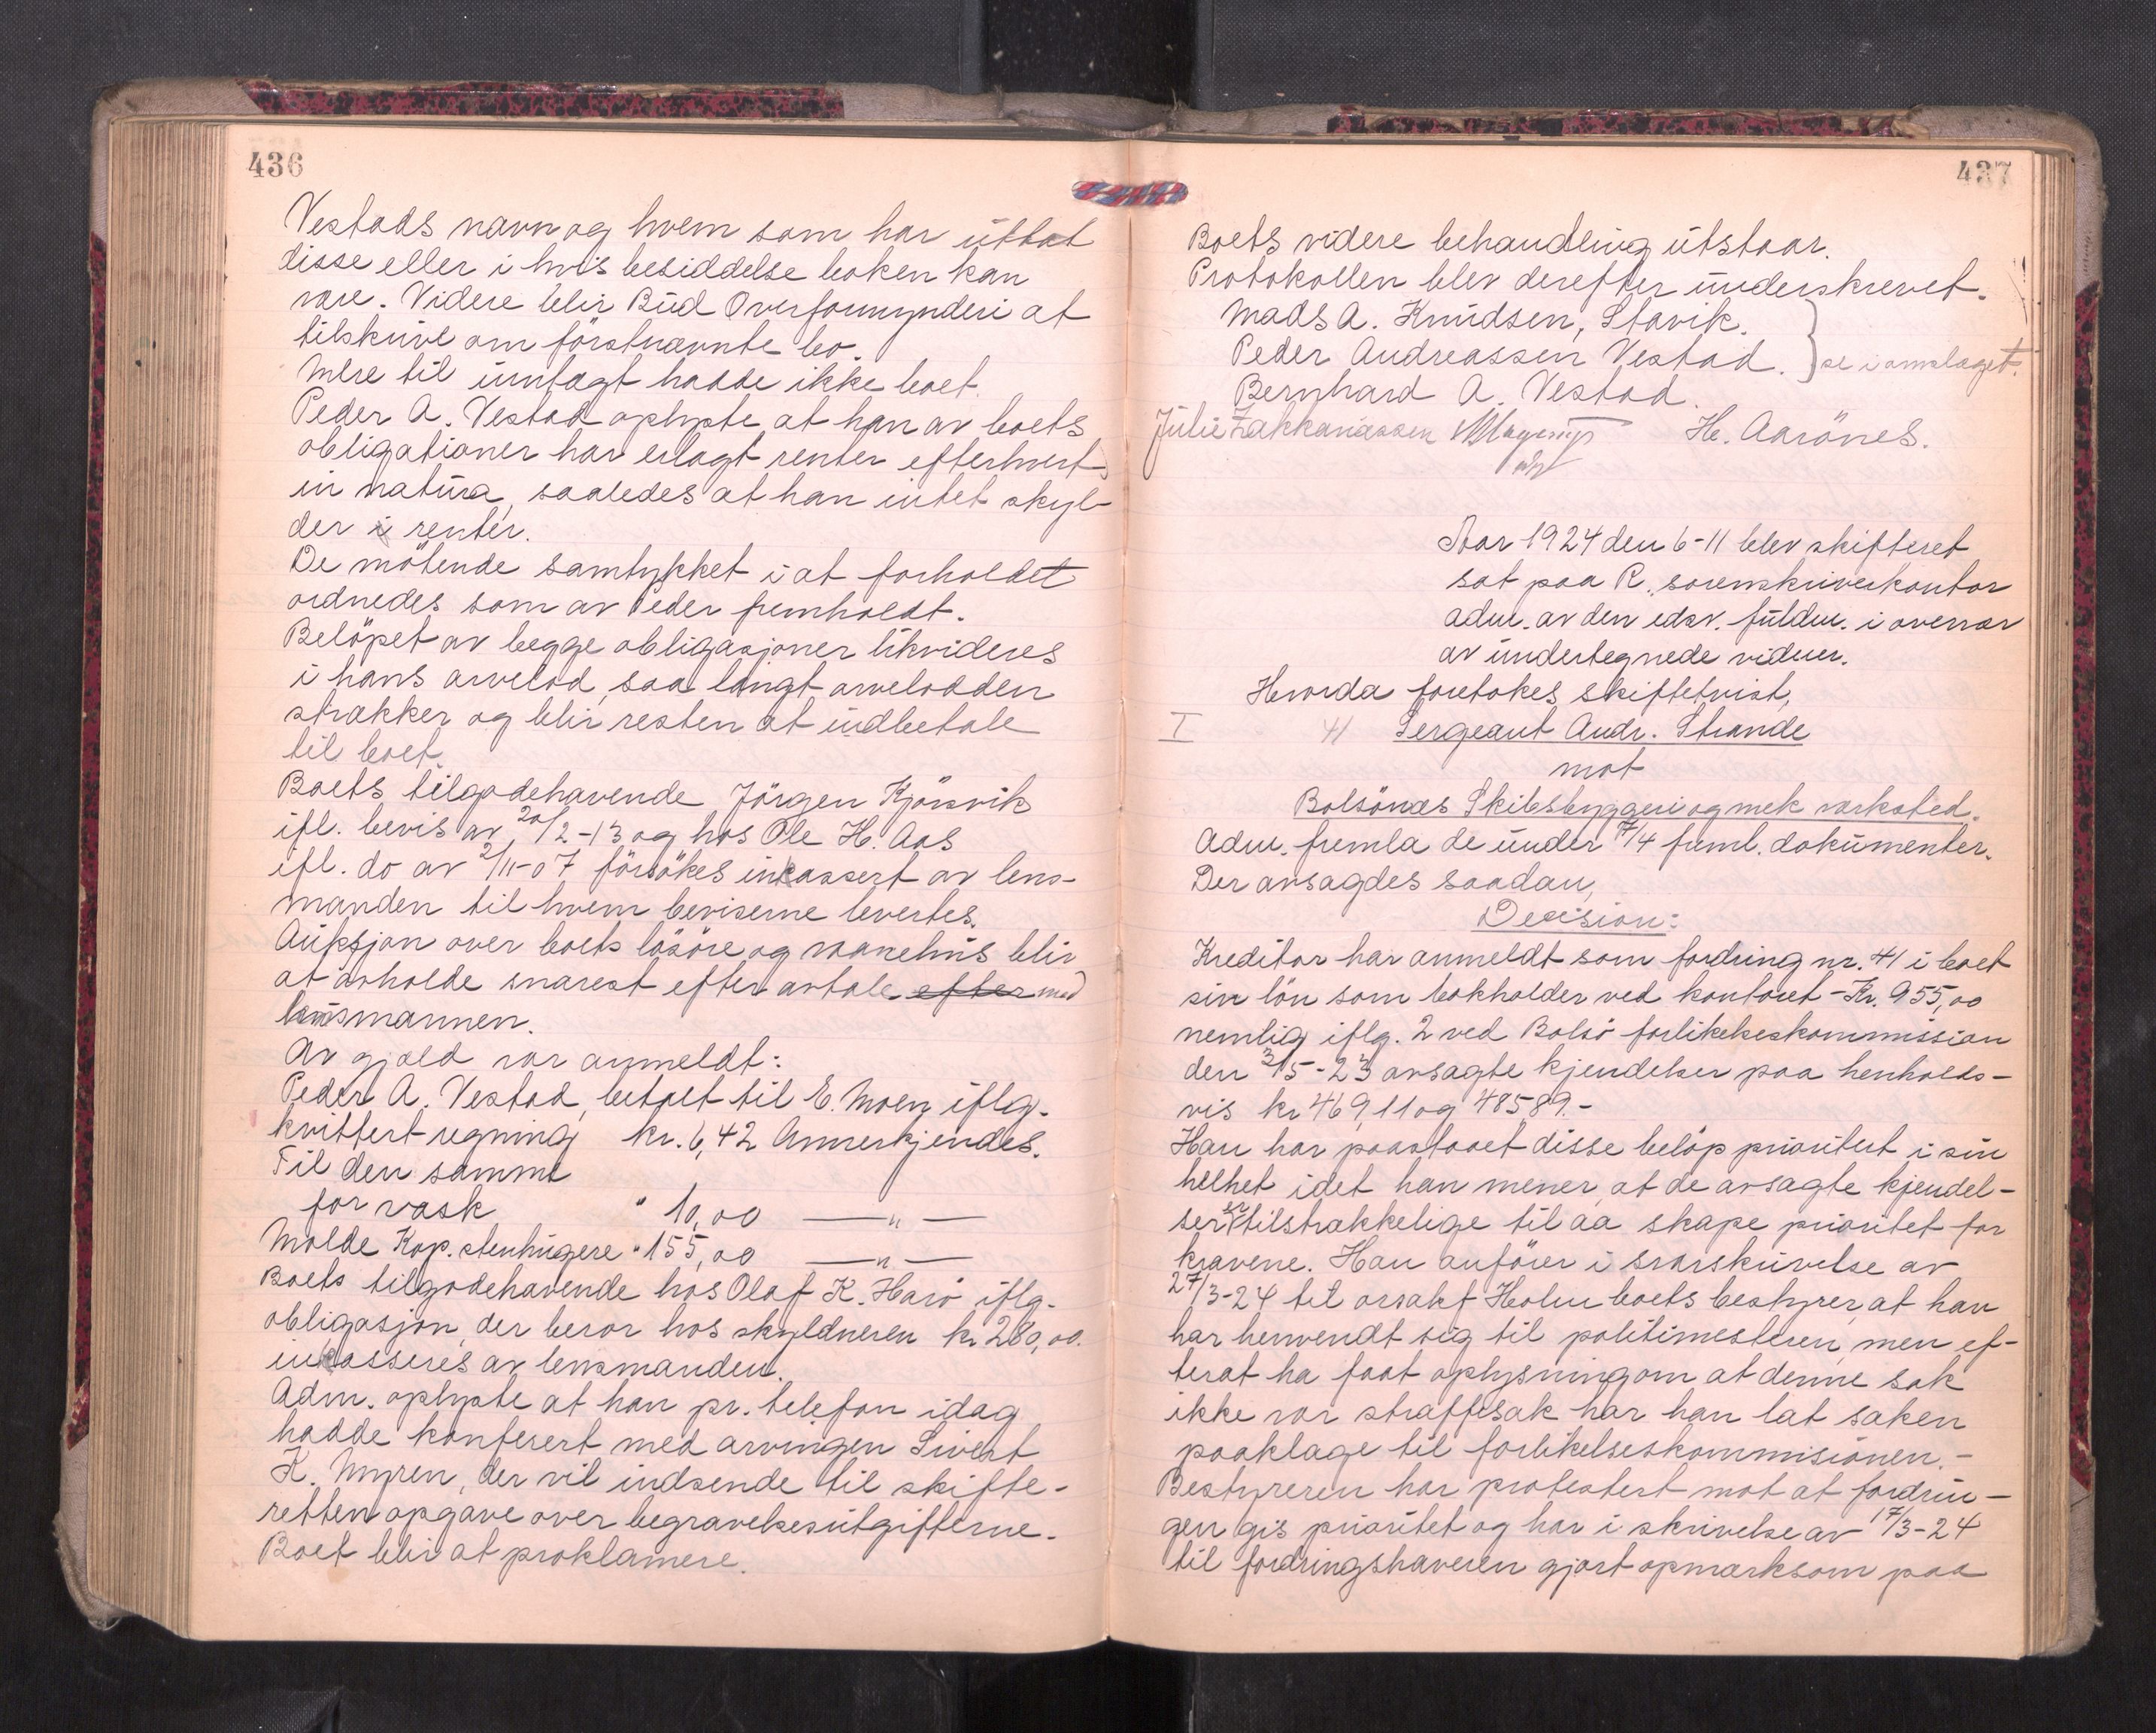 436
Vestads navn og hvem som har uttat
disse eller i hvis besiddelse boken kan
være. Videre blir Bud Overformynderi at
tilskrive om förstnævnte bo.
Mere til inntægt hadde ikke boet.
Peder A. Vestad oplyste at han av boets
obligationer har erlagt renter efterhvert
in natura, saaledes at han intet skyl-
der i renter.
De mötende samtykket i at forholdet
ordnedes som av Peder fremholdt.
Belöpet av begge obligasjoner likvideres
i hans arvelod, saa langt arvelodden
strækker og blir resten at indbetale
til boet.
Boets tilgodehavende Jörgen Kjörsvik
ifl. bevis av 20/2-13 og hos Ole H. Aas
ifl. do av 2/11-07 försökes inkassert av lens-
manden til hvem beviserne levertes.
Auksjon over boets lösöre og vaanehus blir
at avholde snarest efter avtale efter med
lensmannen.
Av gjæld var anmeldt:
Peder A. Vestad, betalt til E. Moen iflg.
kvittert regning kr. 6,42 Annerkjendes.
Til den samme
for vask " 10,00 —"—
Molde Kop. stenhugere " 155,00 —"—
Boets tilgodehavende hos Olaf K. Harö iflg.
obligasjon, der beror hos skyldneren kr 280,00.
inkasseres av lensmanden.
Adm. oplyste at han pr. telefon idag
hadde konferert med arvingen Sivert
K. Myren, der vil indsende til skifte-
retten opgave over begravelsesutgifterne.
Boet blir at proklamere.
437
Boets videre behandling utstaar.
Protokollen blev derefter underskrevet.
Mads A. Knudsen, Stavik.
Peder Andreassen Vestad. } se i omslaget.
Bernhard A. Vestad.
Julie Zakkariassen H. Aarönes.
Aar 1924 den 6-11 blev skifteret
sat paa R. sorenskriverkontor
adm. av den edsv. fuldm. i overvær
av undertegnede vidner.
Hvorda foretokes skiftetvist,
I 41 Sergeant Andr. Strande
mot
Bolsönes Skibsbyggeri og mek verksted.
Adm. fremla de under 17/4 freml. dokumenter.
Der avsagdes saadan,
Decision:
Kreditor har anmeldt som fordring nr. 41 i boet
sin lön som bokholder ved kontoret - Kr. 955,00
nemlig iflg. 2 ved Bolsö forlikelseskommission
den 3/5-23 avsagte kjendelser paa henholds-
vis kr 469,11 og 485 89.-
Han har paastaaet disse belöp prioritert i sin
helhet idet han mener at de avsagte kjendel-
ser er tilstrækkelige til aa skape prioritet for
kravene. Han anförer i svarskrivelse av
27/3-24 til orsakf Holm boets bestyrer, at han
har henvendt sig til politimesteren, men ef-
terat ha faat oplysning om at denne sak
ikke var straffesak har han lat saken
paaklage til forlikelseskommisionen.-
Bestyreren har protestert mot at fordrin-
gen gis prioritet og har i skrivelse av 17/3-24
til fordringshaveren gjort opmerksom paa